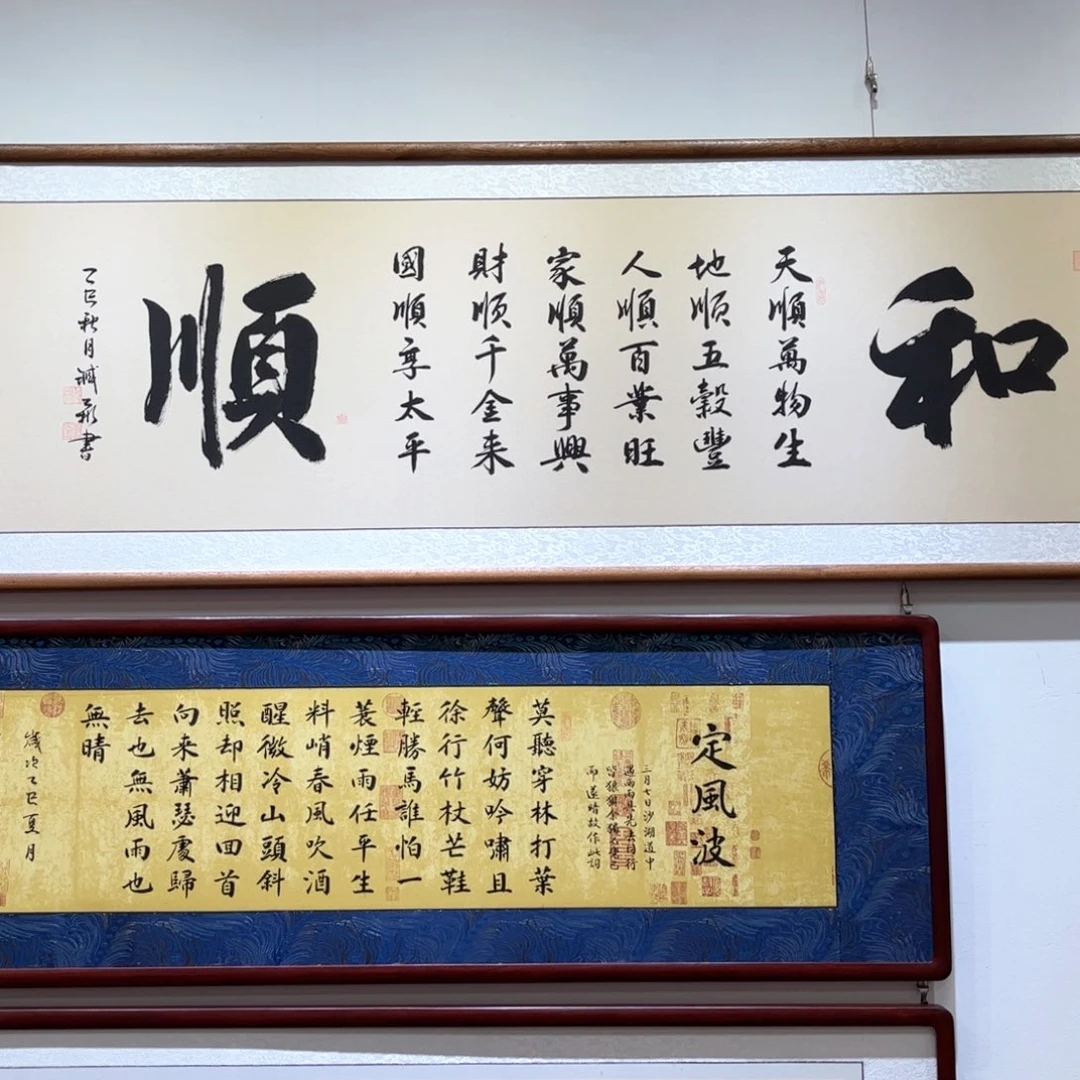 和
天順萬物生
地順五穀豐
人順百業旺
家順萬事興
財順千金来
國順享太平
順
乙巳秋月
書
定風波
三月七日沙湖道中
遇雨雨具先去同行
皆狼狽余獨不覺已
而遂晴故作此詞
莫聽穿林打葉
聲何妨吟嘯且
徐行竹杖芒鞋
輕勝馬誰怕一
蓑煙雨任平生
料峭春風吹酒
醒微冷山頭斜
照却相迎回首
向来蕭瑟處歸
去也無風雨也
無晴
歲次乙巳夏月